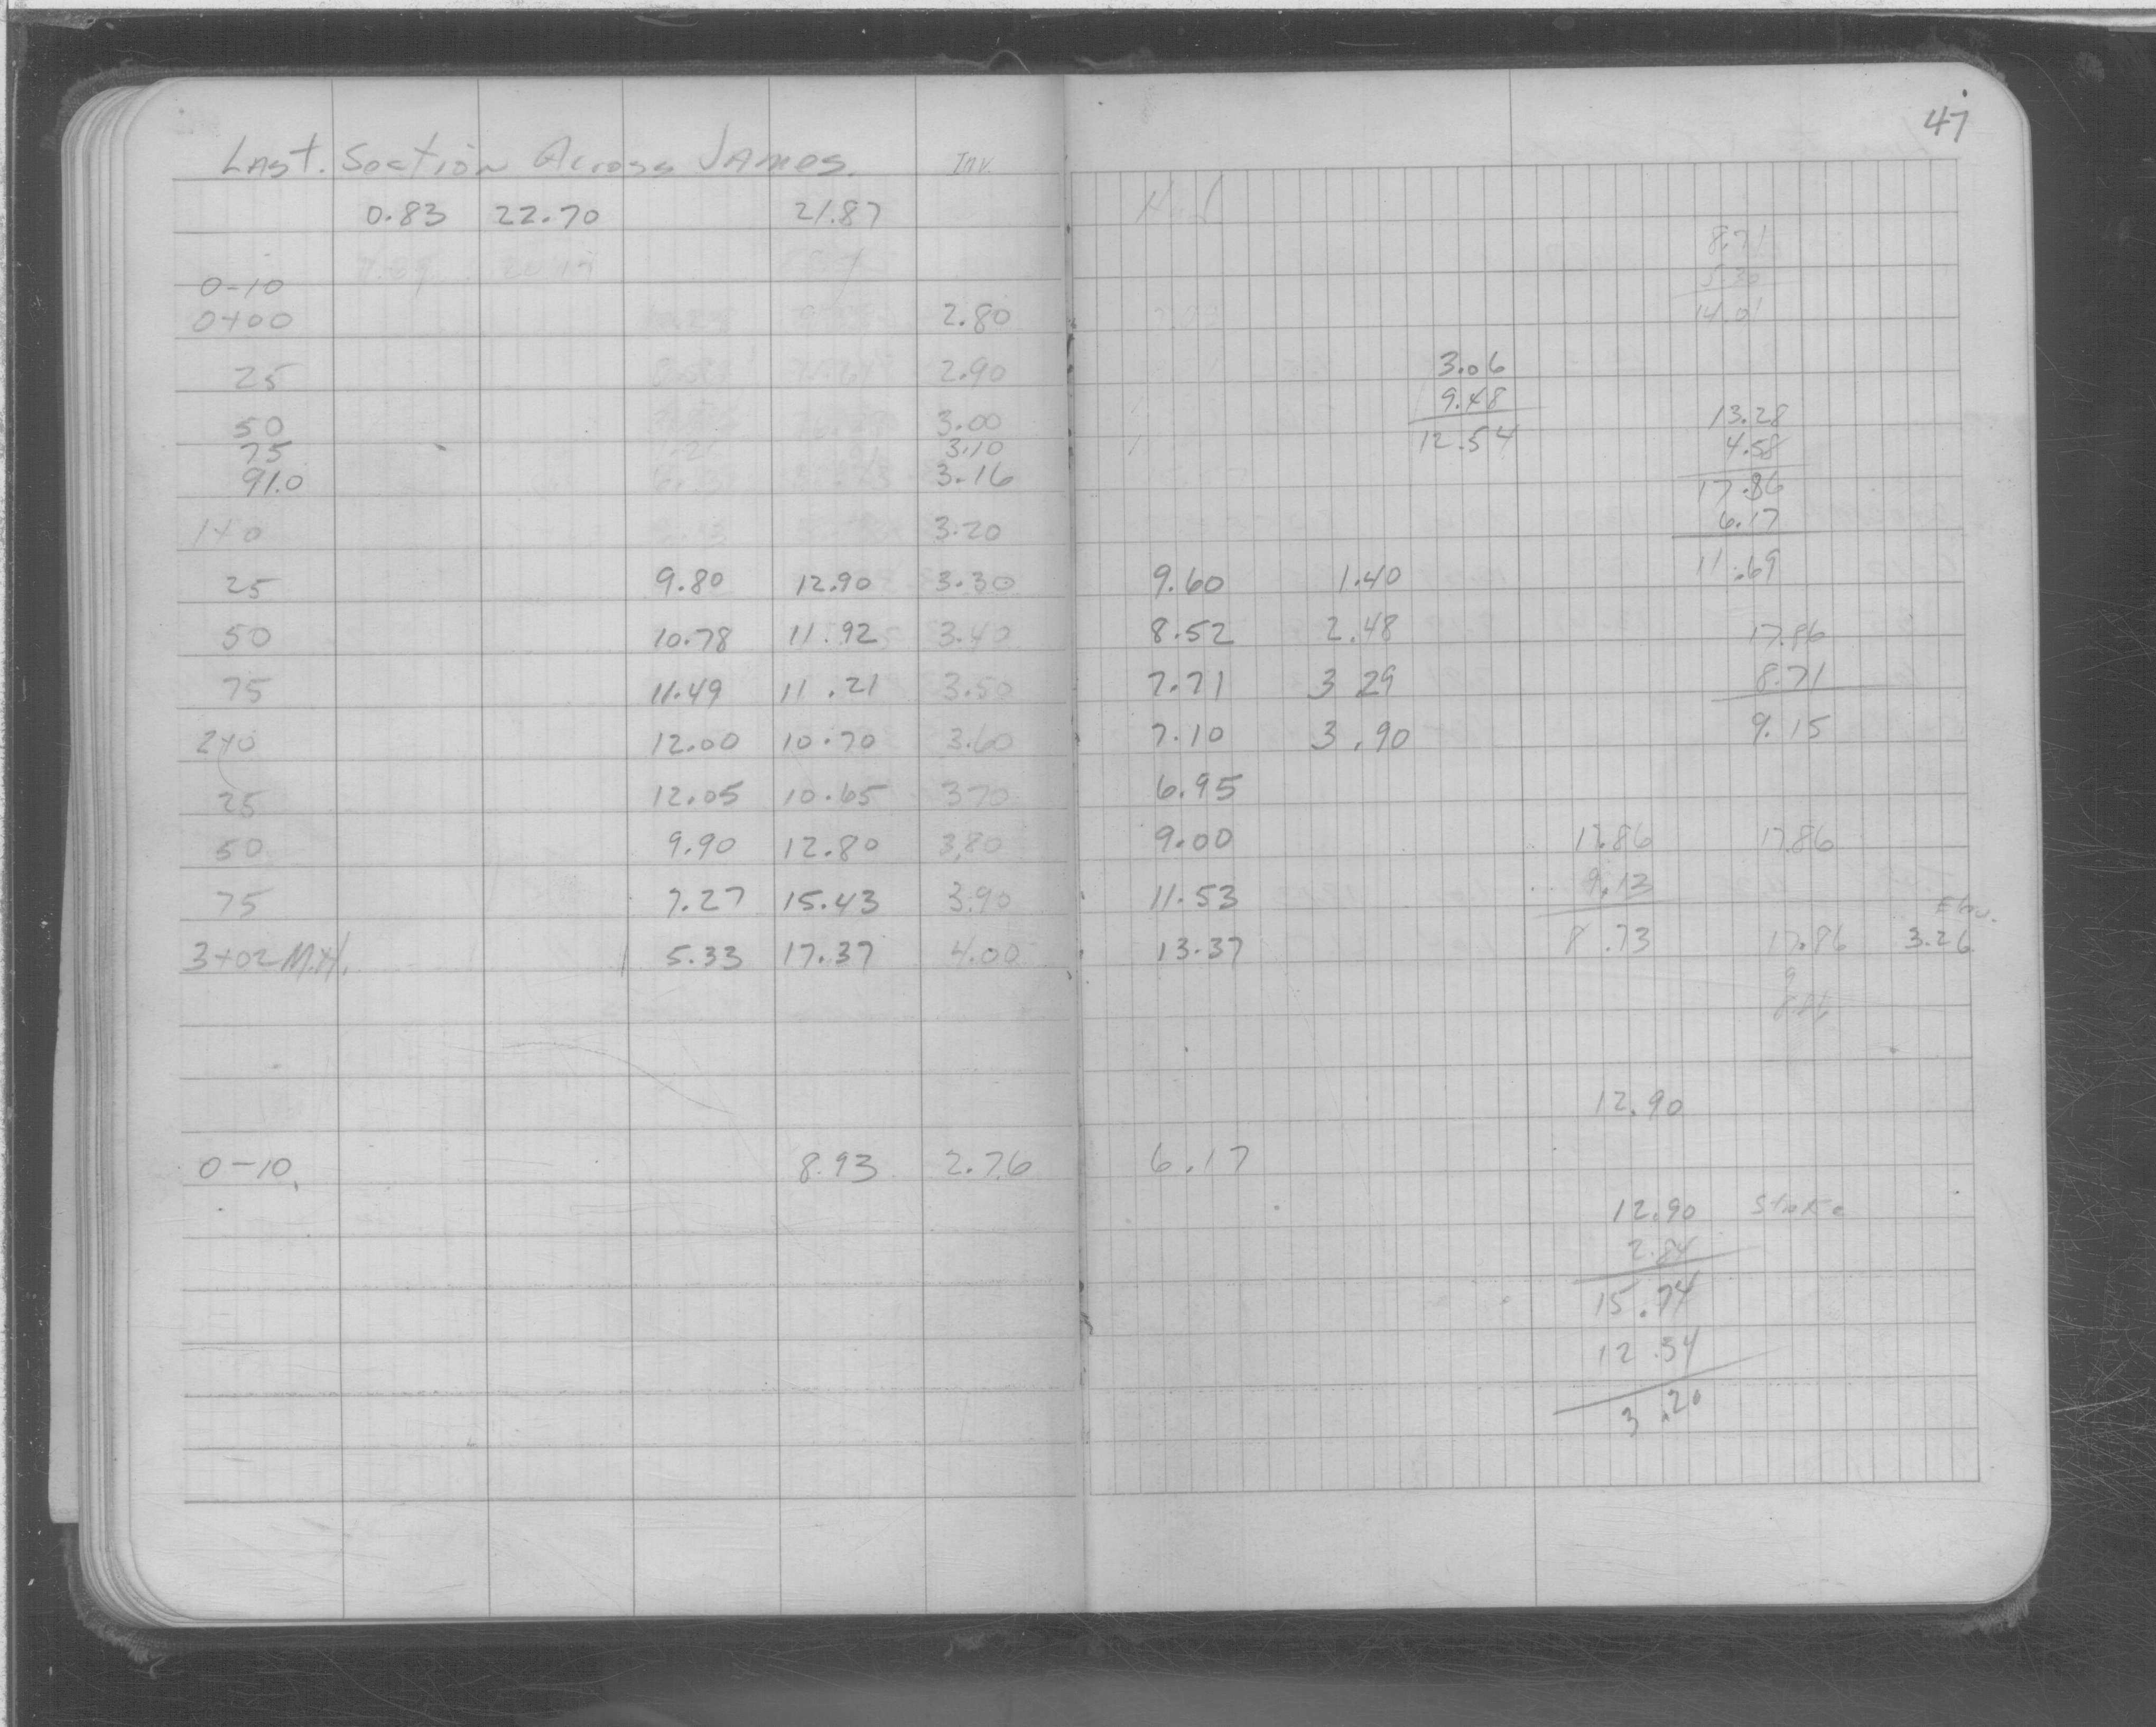 47
Last. Section Across James. Inv.
0.83 22.70 21.87
0-10
0+00 2.80
25 2.90
50 3.00
75 3.10
91.0 3.16
1+0 3.20
25 9.80 12.90 3.30 9.60 1.40
50 10.78 11.92 3.40 8.52 2.48
75 11.49 11.21 3.50 7.71 3 29
2+0 12.00 10.70 3.60 7.10 3.90
25 12.05 10.65 3.70 6.95
50 9.90 12.80 3.80 9.00
75 7.27 15.43 3.90 11.53
3+02 M.H. 5.33 17.37 4.00 13.37
0-10 8.93 2.76 6.17
3.06
9.48
12.54
8.71
5.30
14.01
13.28
4.58
17.86
6.17
11.69
17.86
8.71
9.15
17.86 17.86
9.13
8.73 17.86
Elev.
3.26
12.90
12.90 Stake
2.84
15.74
12.54
3.20